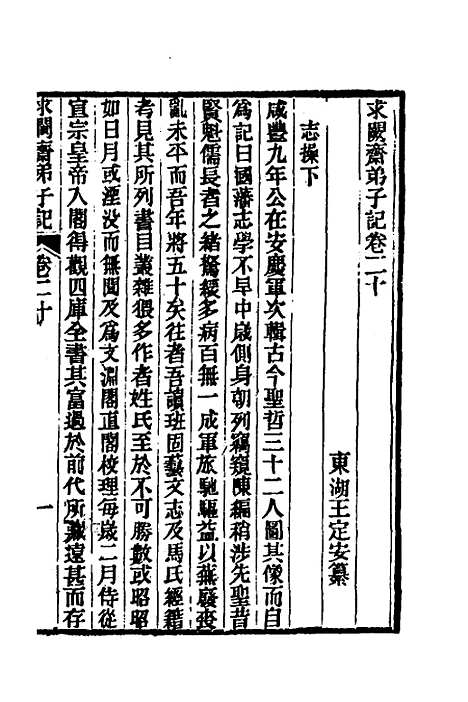 求闕齋弟子記卷二十
東湖王定安纂
志操下
咸豐九年公在安慶軍次輯古今聖哲三十二人圖其像而自
爲記曰國藩志學不早中歲側身朝列竊窺陳編稍涉先聖昔
賢魁儒長者之緒駑緩多病百無一成軍旅馳驅益以蕪廢喪
亂未平而吾年將五十矣往者吾讀班固藝文志及馬氏經籍
考見其所列書目叢雜猥多作者姓氏至於不可勝數或昭昭
如日月或湮沒而無聞及爲文淵閣直閣校理每歲二月侍從
宣宗皇帝入閣得觀四庫全書其富過於前代所藏遠甚而存
求闕齋弟子記 卷二十 一